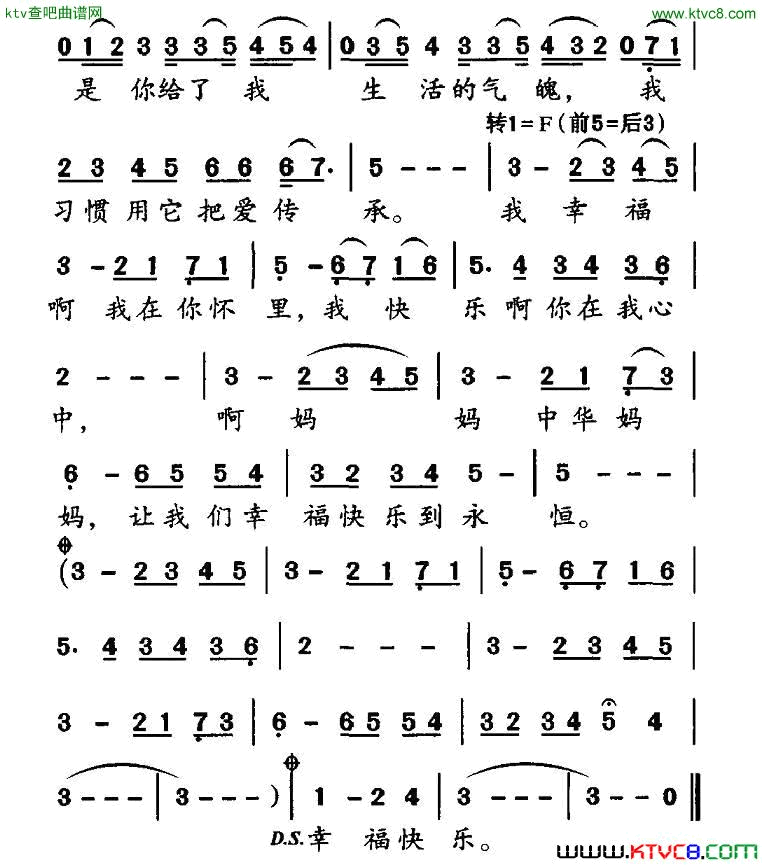 ktv查吧曲谱网 www.ktvc8.com
0 1 2 3 3 3 5 4 5 4 | 0 3 5 4 3 3 5 4 3 2 0 7 1 |
是 你给了 我 生 活的气 魄, 我
转1=F(前5=后3)
2 3 4 5 6 6 6 7. | 5 - - - | 3 - 2 3 4 5 |
习惯 用它 把爱 传 承。 我 幸 福
3 - 2 1 7 1 | 5 - 6 7 1 6 | 5. 4 3 4 3 6 |
啊 我在 你怀 里, 我 快 乐 啊 你在 我心
2 - - - | 3 - 2 3 4 5 | 3 - 2 1 7 3 |
中, 啊 妈 妈 中 华 妈
6 - 6 5 5 4 | 3 2 3 4 5 - | 5 - - - |
妈, 让我 们幸 福快 乐到 永 恒。
(3 - 2 3 4 5 | 3 - 2 1 7 1 | 5 - 6 7 1 6 |
5. 4 3 4 3 6 | 2 - - - | 3 - 2 3 4 5 |
3 - 2 1 7 3 | 6 - 6 5 5 4 | 3 2 3 4 5 4 |
3 - - - | 3 - - - ) | 1 - 2 4 | 3 - - - | 3 - - 0 ||
D.S. 幸 福快 乐。
www.KTVC8.com